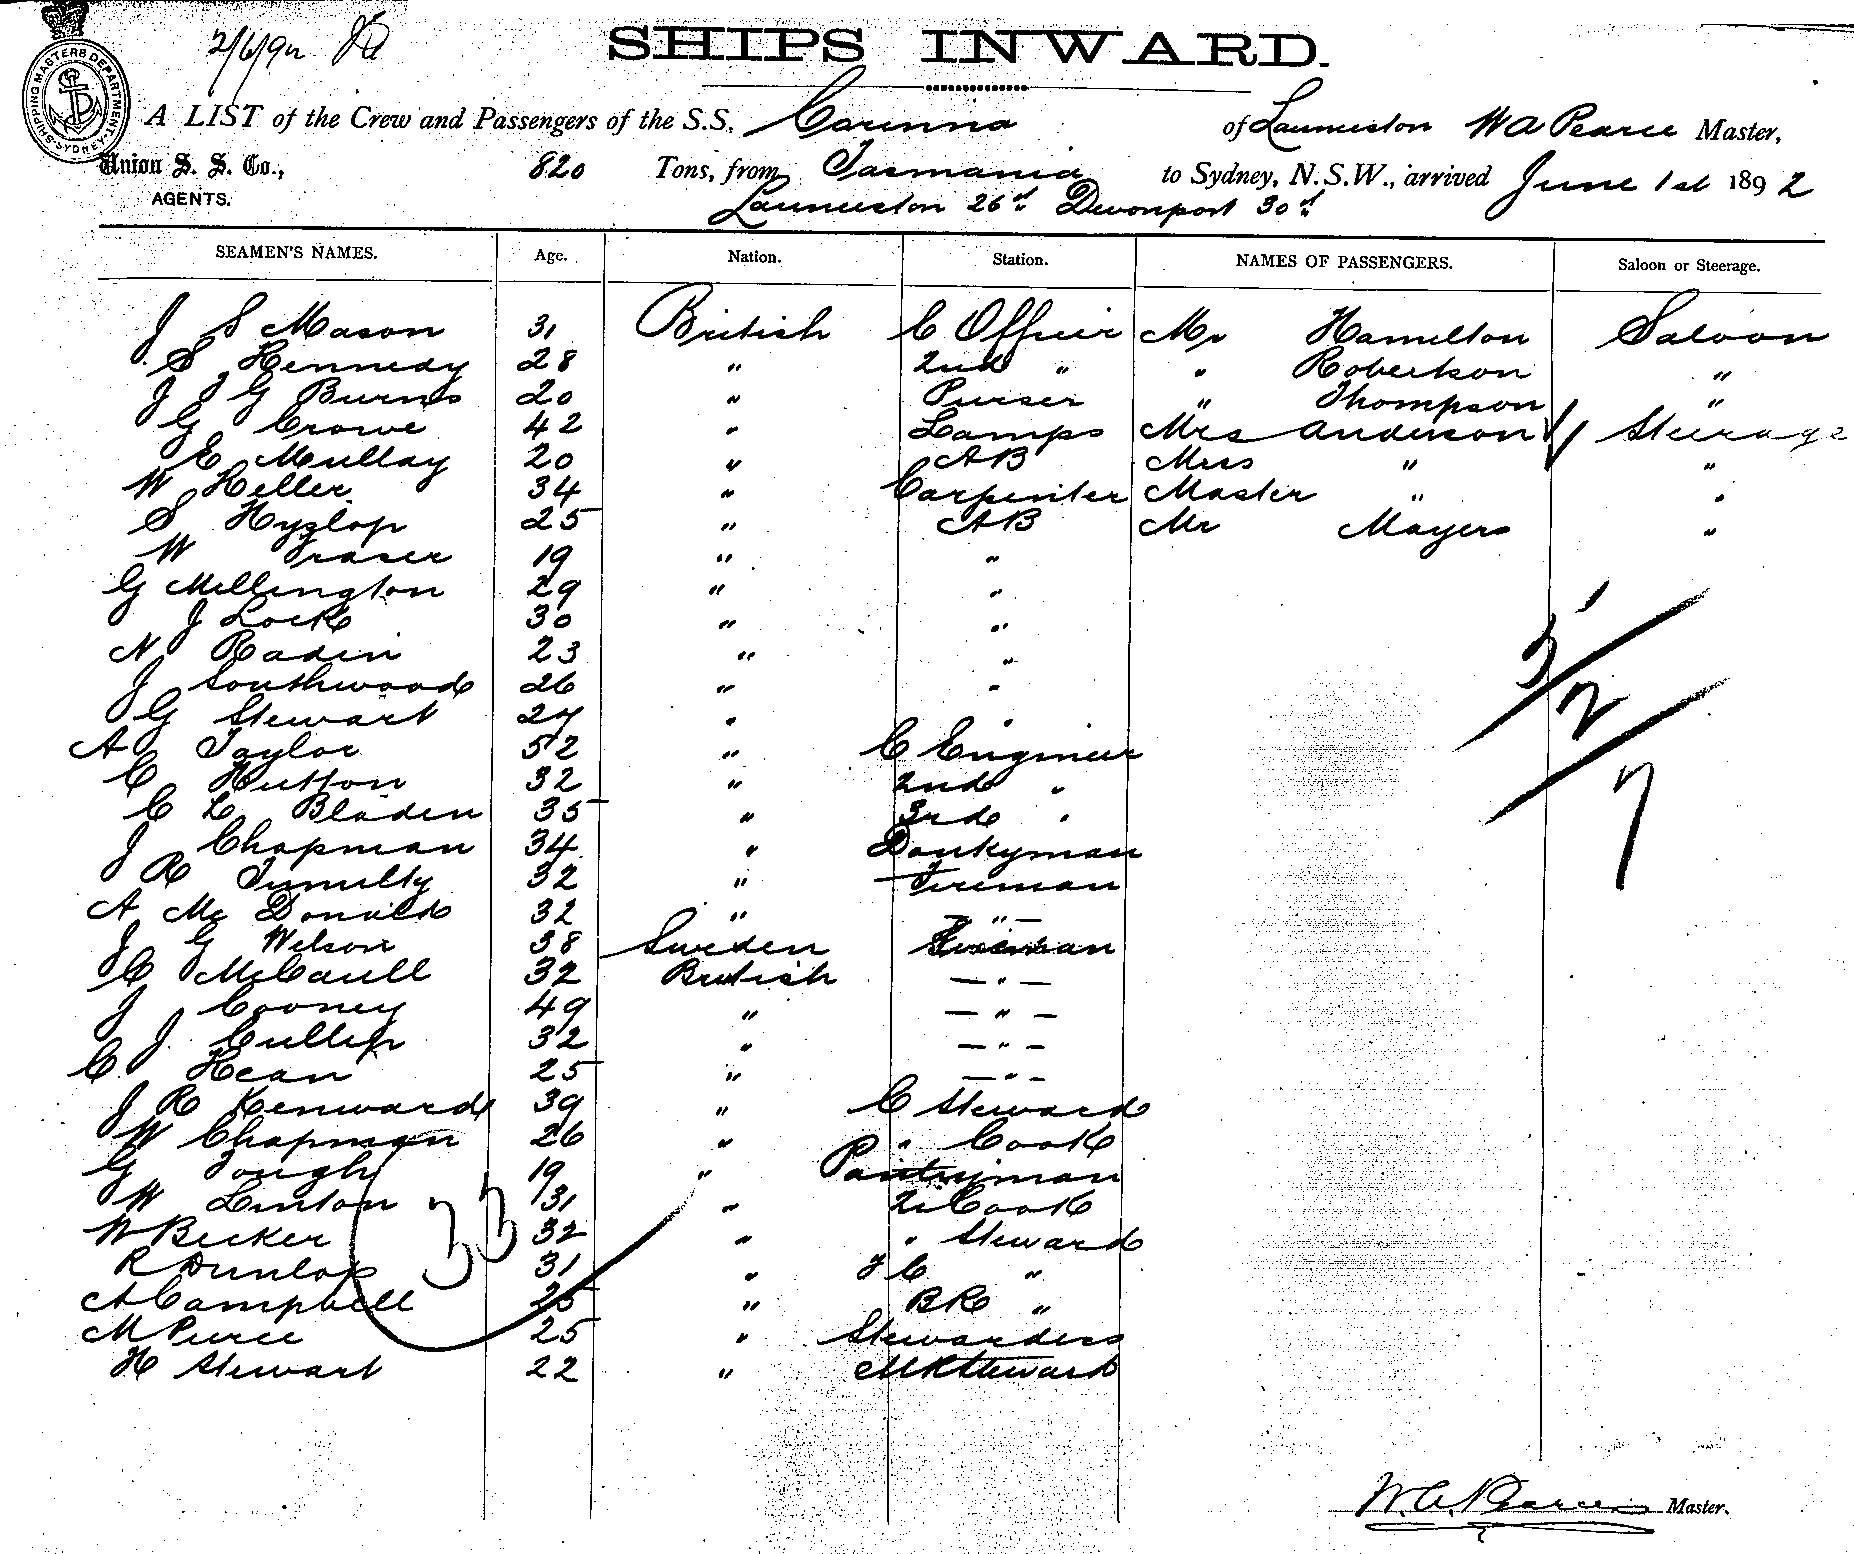 2/6/92
SHIPS INWARD.
SHIPPING MASTERS DEPARTMENT SYDNEY
A LIST of the Crew and Passengers of the S.S. Corinna of Launceston W A Pearce Master,
Union S. S. Co., 820 Tons, from Tasmania to Sydney, N.S.W., arrived June 1st 1892
AGENTS. Launceston 26th Devonport 30th
SEAMEN'S NAMES. Age. Nation. Station. NAMES OF PASSENGERS. Saloon or Steerage.
J S Mason 31 British C Officer Mr Hamilton Saloon
S Kennedy 28 " 2nd " " Robertson "
J J G Burns 20 " Purser " Thompson "
G Crowe 42 " Lamps Mrs Anderson Steerage
E Mullay 20 " AB Miss " "
W Keller 34 " Carpenter Master " "
S Hyzlop 25 " AB Mr Mayers "
W Fraser 19 " "
G Millington 29 " "
J Lock 30 " "
N Radin 23 " "
J Southwood 26 " "
G Stewart 24 " "
A Taylor 52 " C Engineer
C Hutton 32 " 2nd "
C L Bladen 35 " 3rd "
J Chapman 34 " Donkyman
R Tumulty 32 " Fireman
A Mc Donald 32 " "
J G Wilson 38 Sweden Fireman
C McCaull 32 British "
J Cooney 49 " "
C J Cullen 32 " "
C Hean 25 " "
J R Kenward 39 " C Steward
W Chapman 26 " " Cook
G Tough 19 " Pantryman
W Linton 31 " 2 Cook
W Becker 32 " " Steward
R Dunlop 31 " F C "
A Campbell 25 " BR "
M Pierce 25 " Stewardess
H Stewart 22 " MR Steward
33
5/2/7
W. A. Pearce Master.